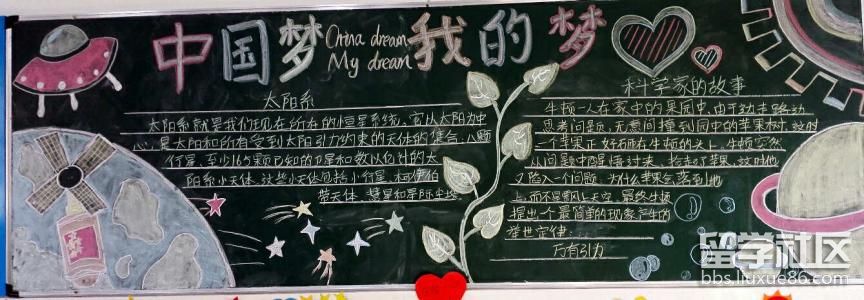 中国梦 China dream 我的梦
My dream
太阳系
太阳系就是我们现在所在的恒星系统,它以太阳为中
心,是太阳和所有受到太阳引力约束的天体的集合,八颗
行星、至少165颗已知的卫星和数以亿计的太
阳系小天体,这些小天体包括小行星、柯伊伯
带天体、彗星和星际尘埃
科学家的故事
牛顿一人在家中的果园中,由于边走路边
思考问题,无意间撞到园中的苹果树,这时
一个苹果正好砸在牛顿的头上,牛顿突然
从问题中醒悟过来,捡起了苹果,这时他
又陷入一个问题,为什么苹果会落到地
上,而不是飞上天空,最终牛顿
提出一个最简单的现象产生的
举世定律
万有引力
留学社区
bbs.liuxue86.com